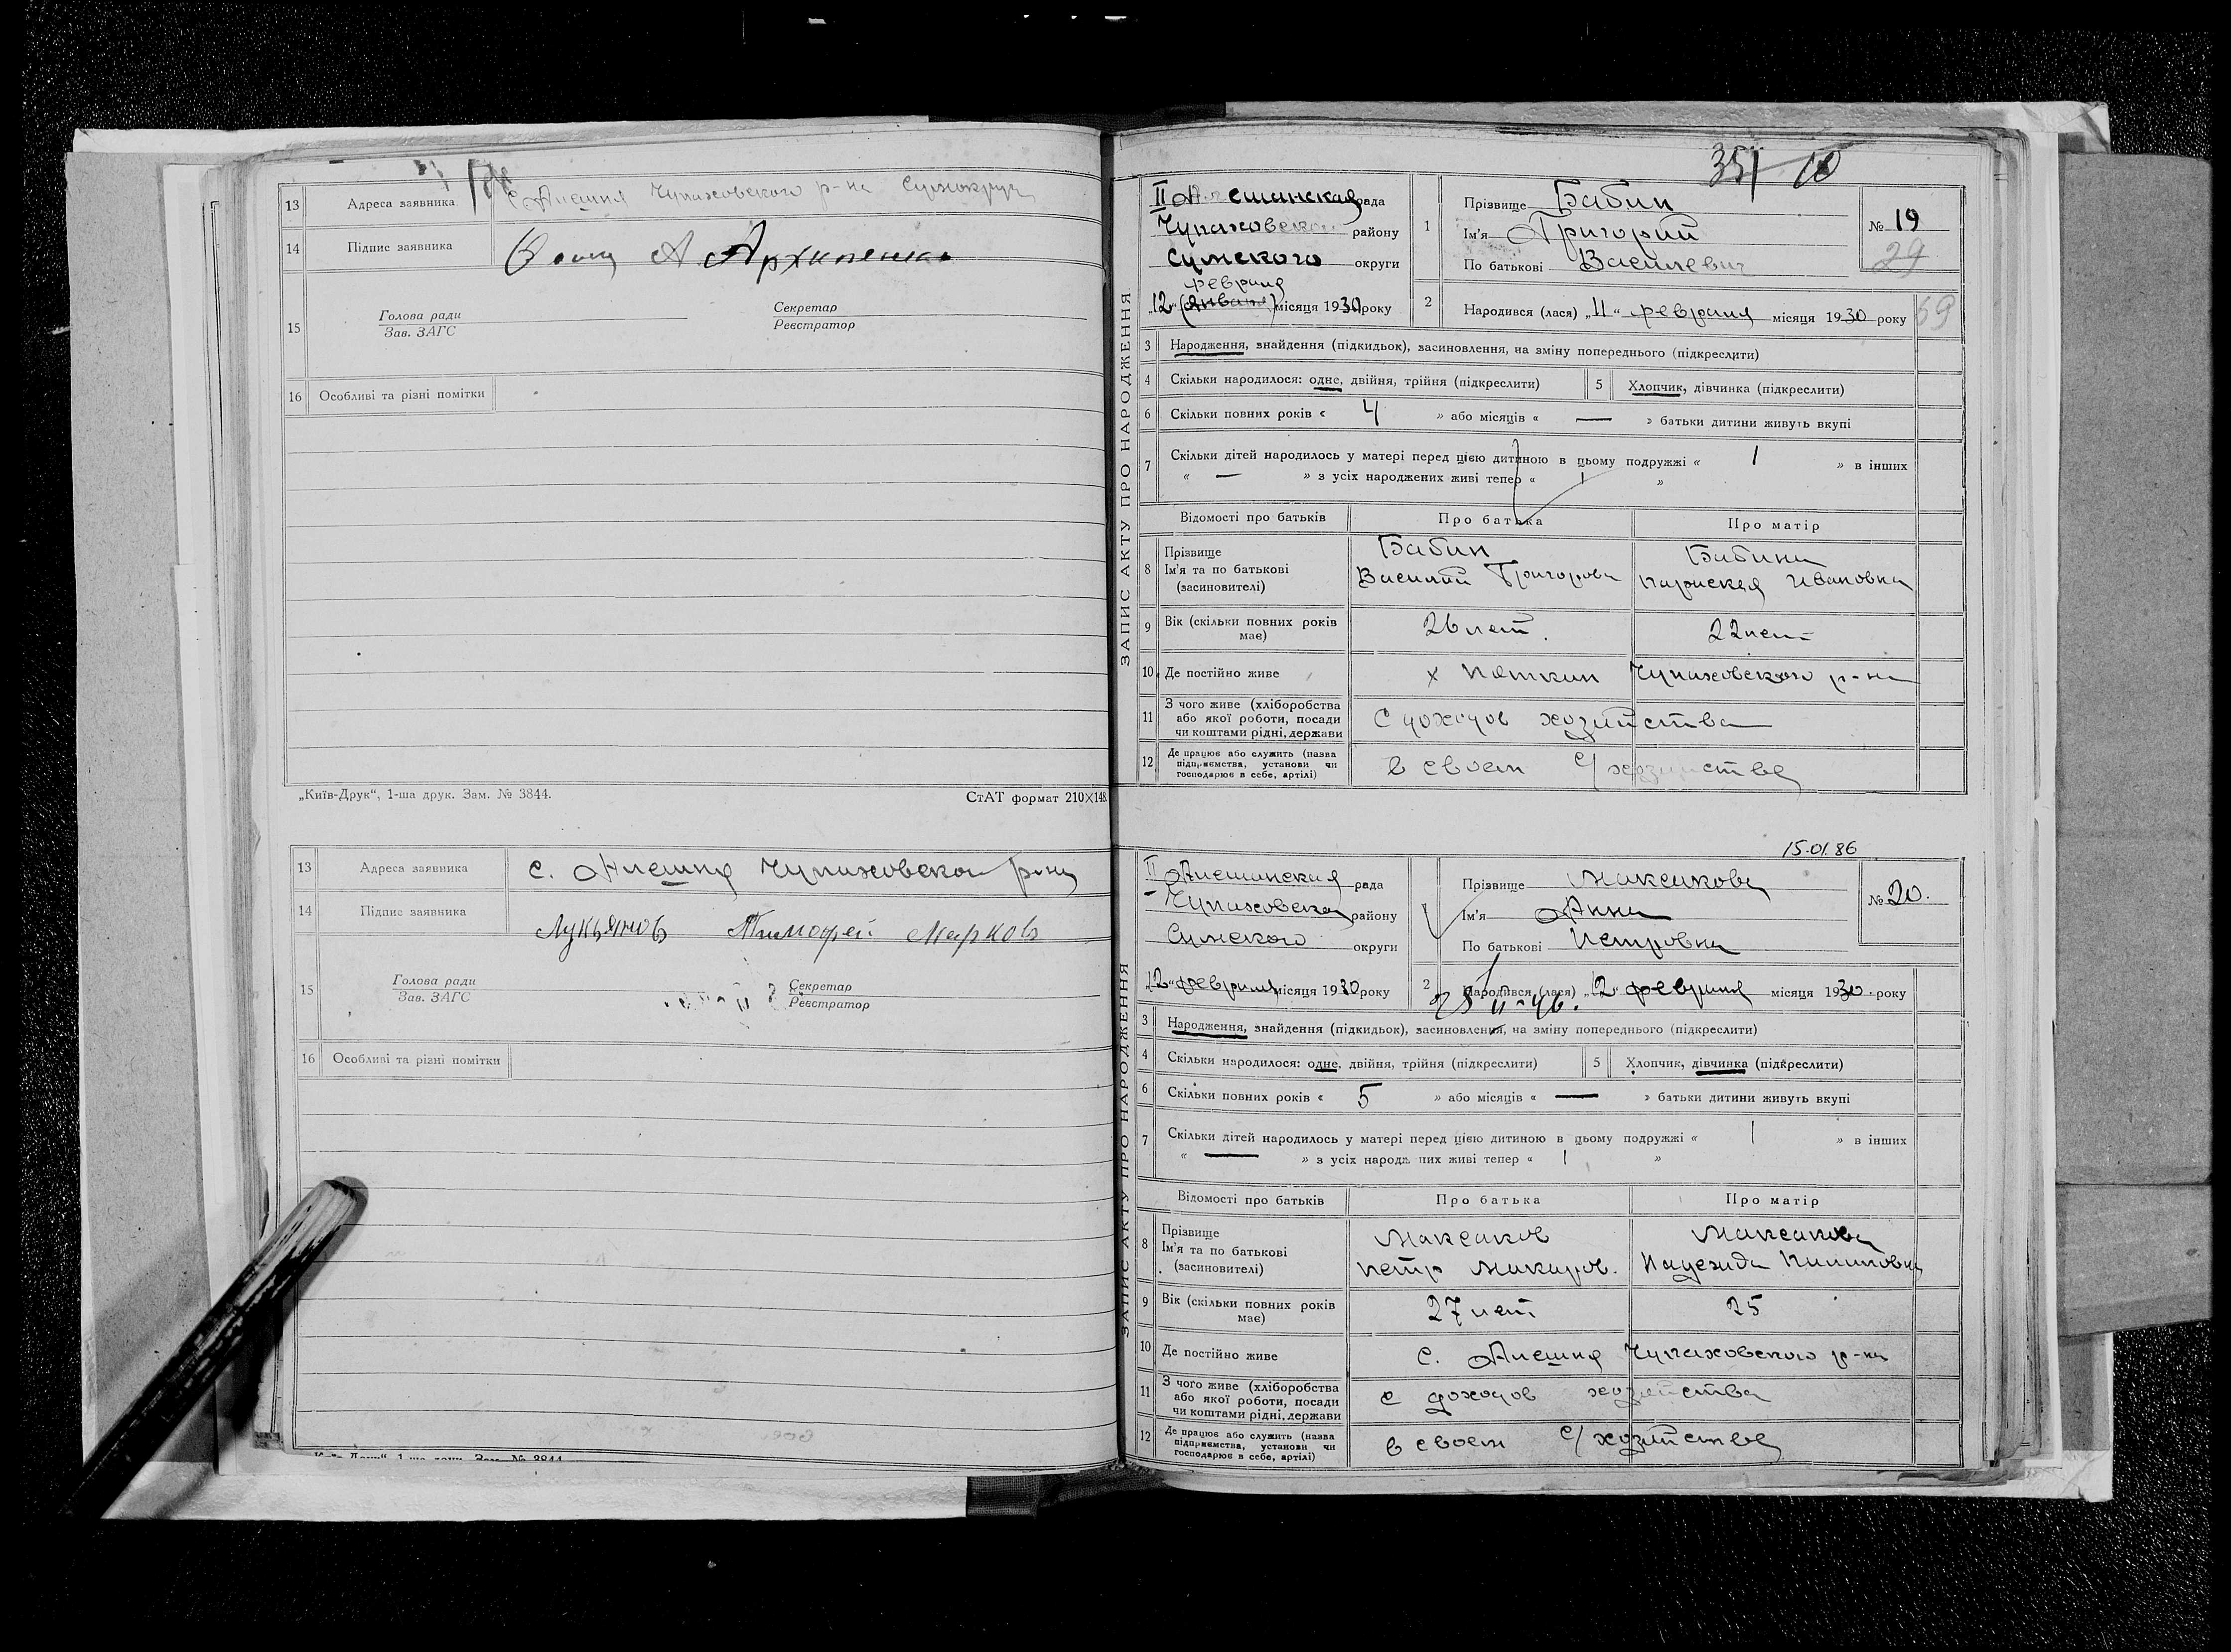 13 Адреса заявника с. Алешня Чупаховского р-на Сумокруга
14 Підпис заявника А. Архипенко
15 Голова ради Секретар
Зав. ЗАГС Реєстратор
16 Особливі та різні помітки
„Київ-Друк“, 1-ша друк. Зам. № 3844. СтАТ формат 210×148
13 Адреса заявника с. Алешня Чупаховского р-на
14 Підпис заявника Лукьянов Тимофей Марков
15 Голова ради Секретар
Зав. ЗАГС Реєстратор
16 Особливі та різні помітки
351 10
ЗАПИС АКТУ ПРО НАРОДЖЕННЯ
II Алешанская рада
Чупаховского району
Сумского округи
февраля
„12“ (января) місяця 1930 року
1 Прізвище Бабин
Ім'я Григорий
По батькові Василевич
№ 19
29
2 Народився (лася) „11“ февраля місяця 1930 року
69
3 Народження, знайдення (підкидьок), засиновлення, на зміну попереднього (підкреслити)
4 Скільки народилося: одне, двійня, трійня (підкреслити) 5 Хлопчик, дівчинка (підкреслити)
6 Скільки повних років « 4 » або місяців « — » батьки дитини живуть вкупі
7 Скільки дітей народилось у матері перед цією дитиною в цьому подружжі « 1 » в інших
« — » з усіх народжених живі тепер « 1 »
Відомості про батьків Про батька Про матір
8 Прізвище Бабин Бабина
Ім'я та по батькові Василий Григоров Ивановна
(засиновителі)
9 Вік (скільки повних років має) 26 лет. 22 лет
10 Де постійно живе х Чупаховского р-на
11 З чого живе (хліборобства або якої роботи, посади чи коштами рідні, держави С доходов хозяйства
12 Де працює або служить (назва підприємства, установи чи господарює в себе, артілі) в своем с/хозяйстве
15.01.86
ЗАПИС АКТУ ПРО НАРОДЖЕННЯ
II Алешанская рада
Чупаховска району
Сумского округи
„12“ февраля місяця 1930 року
1 Прізвище Максакова
Ім'я Анна
По батькові Петровна
№ 20.
2 Народився (лася) „12“ февраля місяця 1930 року
3 Народження, знайдення (підкидьок), засиновлення, на зміну попереднього (підкреслити)
4 Скільки народилося: одне, двійня, трійня (підкреслити) 5 Хлопчик, дівчинка (підкреслити)
6 Скільки повних років « 5 » або місяців « — » батьки дитини живуть вкупі
7 Скільки дітей народилось у матері перед цією дитиною в цьому подружжі « 1 » в інших
« — » з усіх народж них живі тепер « 1 »
Відомості про батьків Про батька Про матір
8 Прізвище Максаков Максакова
Ім'я та по батькові Петр Макаров. Надежда
(засиновителі)
9 Вік (скільки повних років має) 27 лет 25
10 Де постійно живе с. Алешня Чупаховского р-на
11 З чого живе (хліборобства або якої роботи, посади чи коштами рідні, держави с доходов хозяйства
12 Де працює або служить (назва підприємства, установи чи господарює в себе, артілі) в своем с/хозяйстве